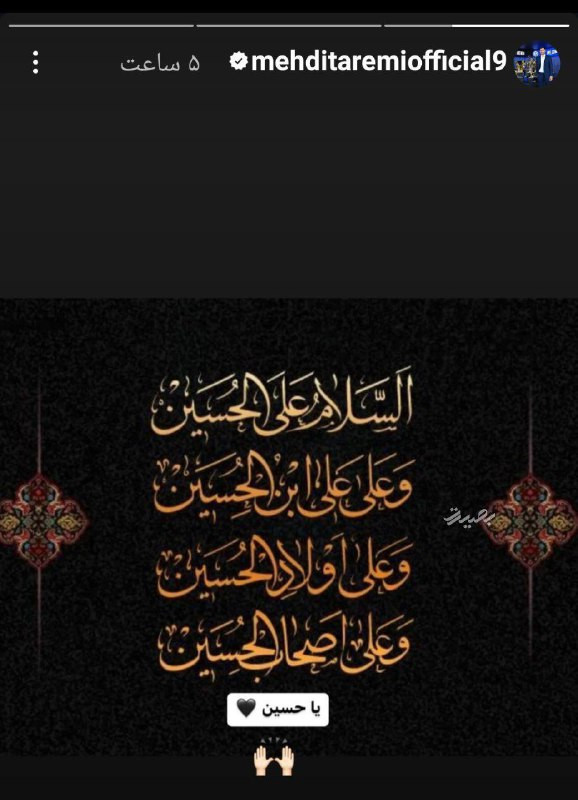 mehditaremiofficial9
۵ ساعت
اَلسَّلامُ عَلَی الحُسَین
وَعَلی عَلی ابنِ الحُسَین
وَعَلی اَولادِ الحُسَین
وَعَلی اَصحاب الحُسَین
بصیرت
یا حسین 🖤
🙌🏻